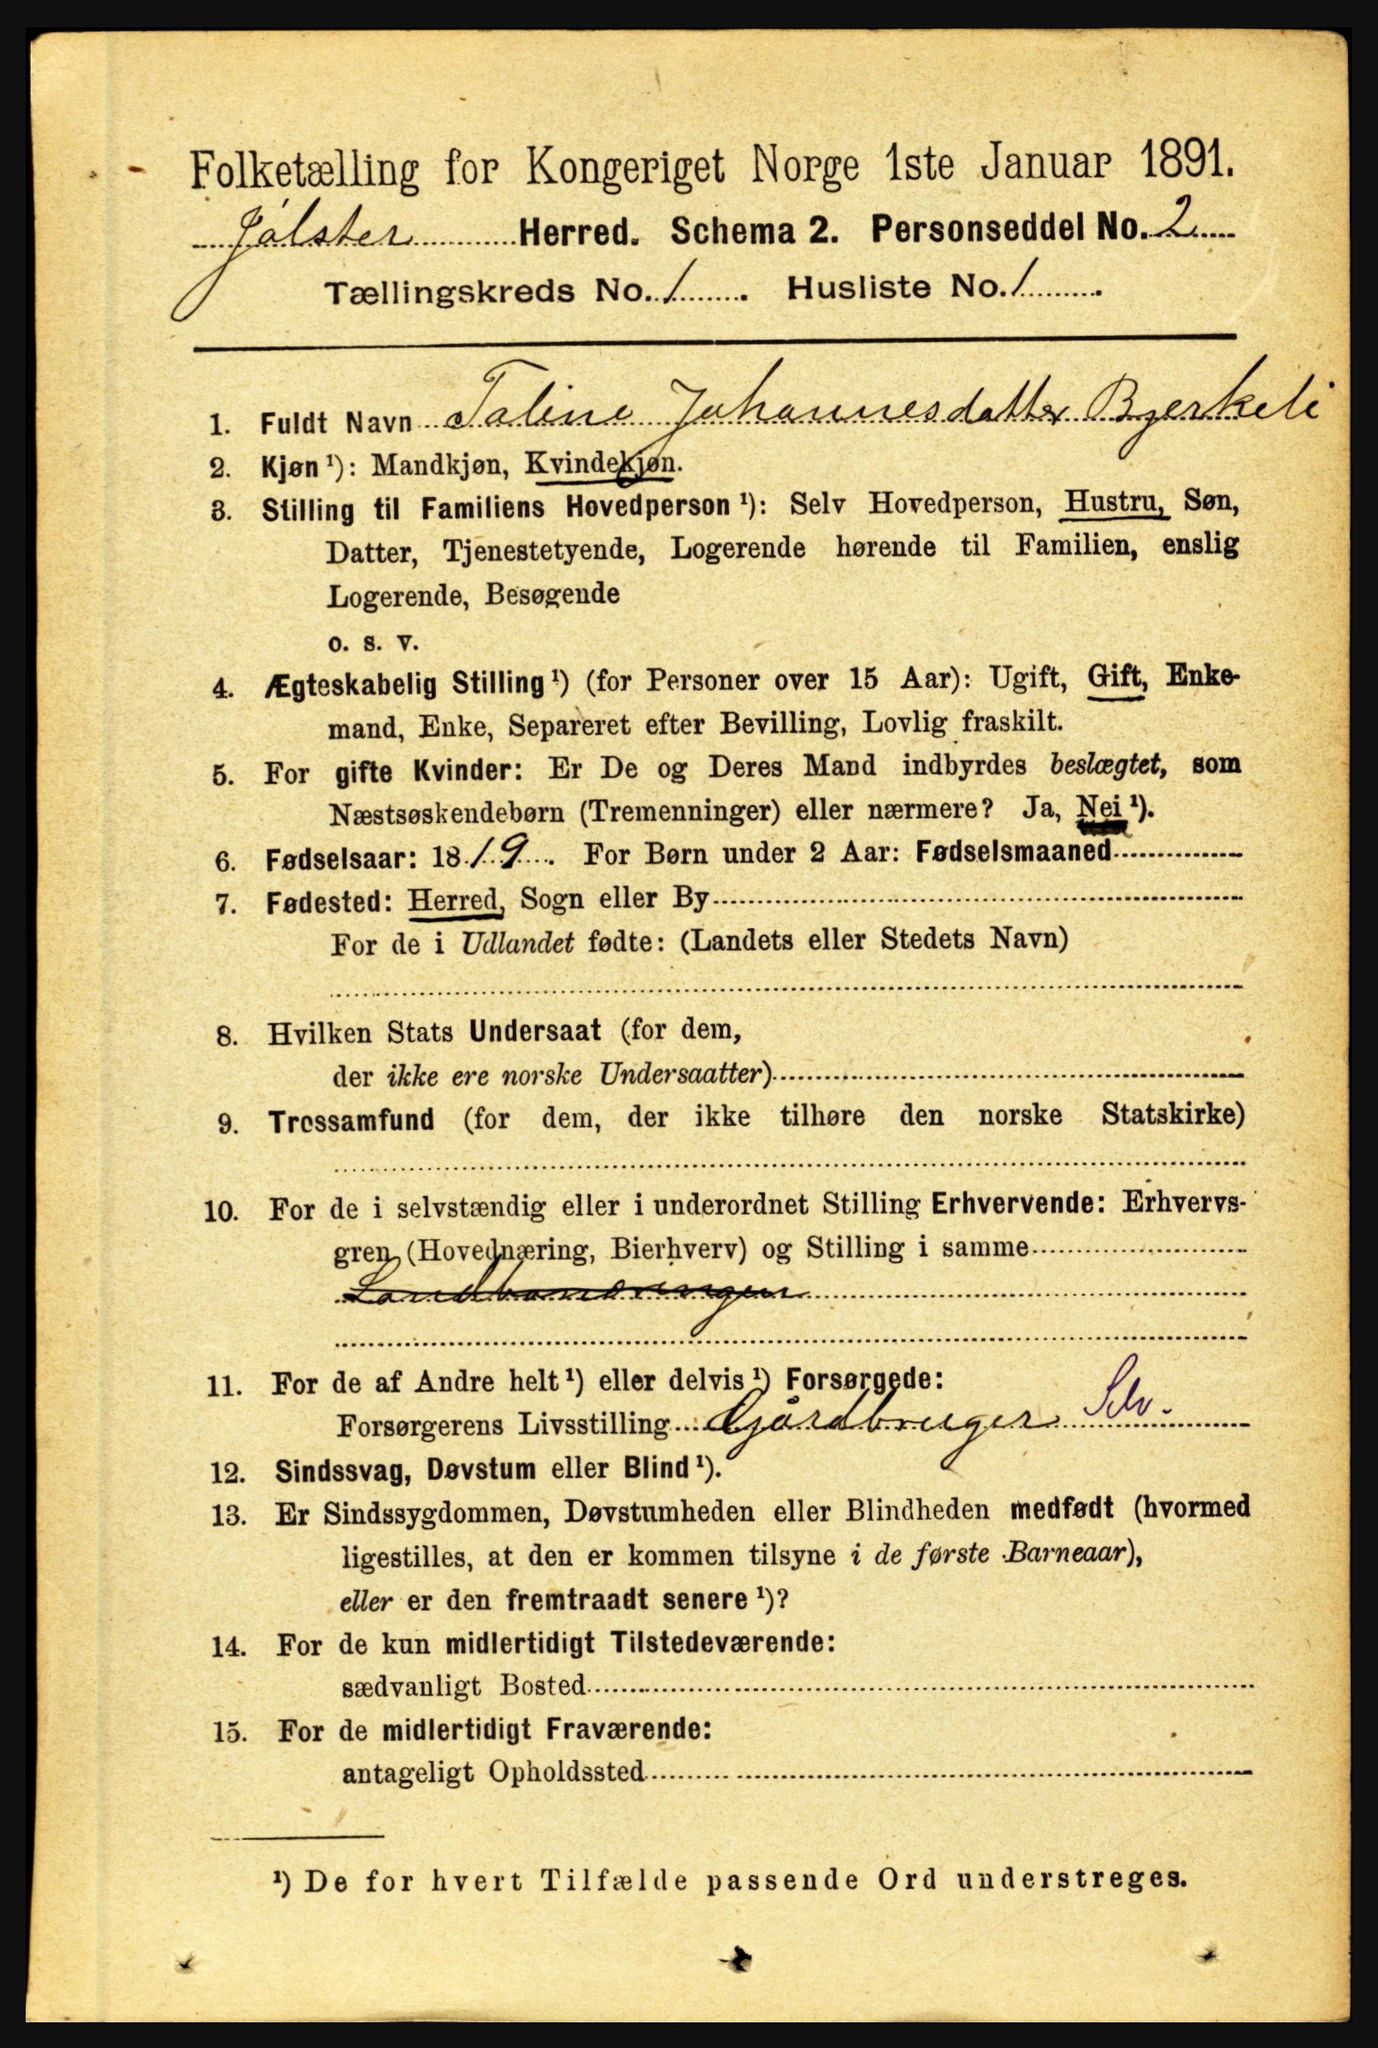 Folketælling for Kongeriget Norge 1ste Januar 1891.
Jølster Herred. Schema 2. Personseddel No. 2
Tællingskreds No. 1. Husliste No. 1.
1. Fuldt Navn Taline Johannesdatter Bjerkeli
2. Kjøn ¹): Mandkjøn, Kvindekjøn.
3. Stilling til Familiens Hovedperson ¹): Selv Hovedperson, Hustru, Søn,
Datter, Tjenestetyende, Logerende hørende til Familien, enslig
Logerende, Besøgende
o. s. v.
4. Ægteskabelig Stilling ¹) (for Personer over 15 Aar): Ugift, Gift, Enke-
mand, Enke, Separeret efter Bevilling, Lovlig fraskilt.
5. For gifte Kvinder: Er De og Deres Mand indbyrdes beslægtet, som
Næstsøskendebørn (Tremenninger) eller nærmere? Ja, Nei ¹).
6. Fødselsaar: 1819. For Børn under 2 Aar: Fødselsmaaned
7. Fødested: Herred, Sogn eller By
For de i Udlandet fødte: (Landets eller Stedets Navn)
8. Hvilken Stats Undersaat (for dem,
der ikke ere norske Undersaatter)
9. Trossamfund (for dem, der ikke tilhøre den norske Statskirke)
10. For de i selvstændig eller i underordnet Stilling Erhvervende: Erhvervs-
gren (Hovednæring, Bierhverv) og Stilling i samme
11. For de af Andre helt ¹) eller delvis ¹) Forsørgede:
Forsørgerens Livsstilling Gårdbruger Selv.
12. Sindssvag, Døvstum eller Blind ¹).
13. Er Sindssygdommen, Døvstumheden eller Blindheden medfødt (hvormed
ligestilles, at den er kommen tilsyne i de første Barneaar),
eller er den fremtraadt senere ¹)?
14. For de kun midlertidigt Tilstedeværende:
sædvanligt Bosted
15. For de midlertidigt Fraværende:
antageligt Opholdssted
¹) De for hvert Tilfælde passende Ord understreges.